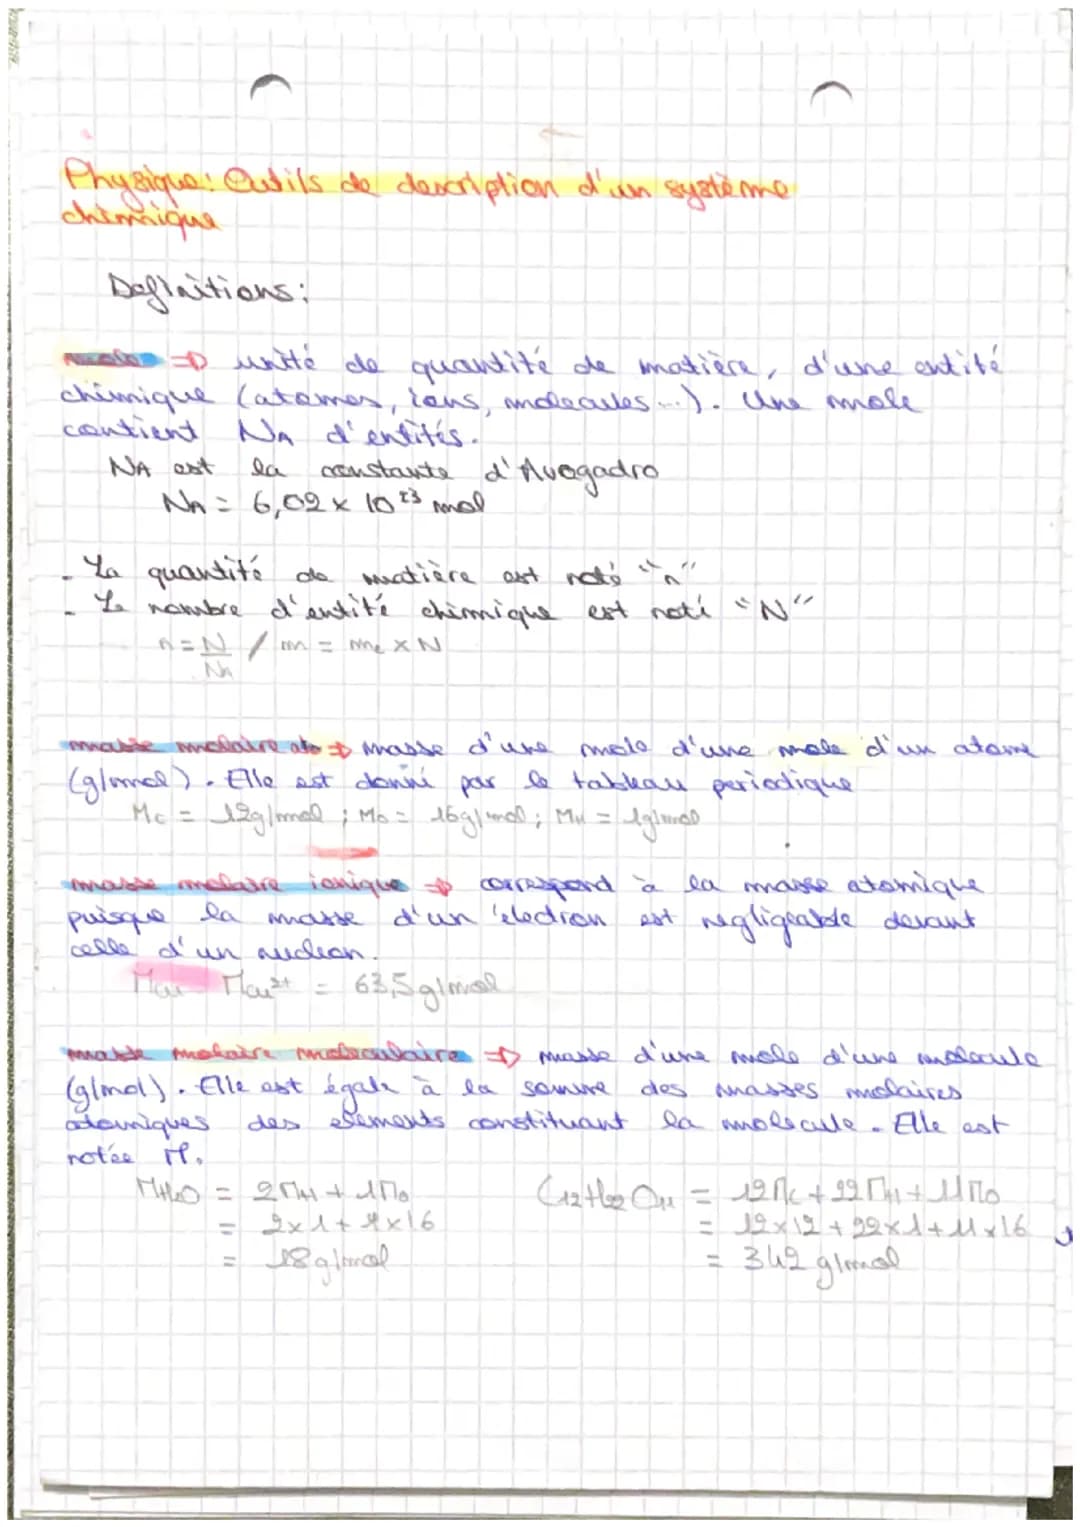 Physique: Outils de description d'un système
chimique
Definitions:
mole => unité de quantité de matière, d'une entité
chimique (atomes, ions, molécules...). Une mole
contient NA d'entités.
NA est la constante d'Avogadro
NA = 6,02 x 10²³ mol
- La quantité de matière est noté "n"
- Le nombre d'entité chimique est noté "N"
n = N/NA / m = me x N
masse molaire ato => masse d'une mole d'une mole d'un atome
(g/mol). Elle est donné par le tableau periodique
Mc = 12g/mol ; Mo = 16g/mol ; MH = 1g/mol
masse molaire ionique => correspond à la masse atomique
puisque la masse d'un électron est negligeable devant
celle d'un nucleon.
Mcu Mcu²⁺ = 63,5g/mol
masse molaire moleculaire => masse d'une mole d'une molecule
(g/mol). Elle est égale à la somme des masses molaires
atomiques des elements constituant la molecule. Elle est
notée M.
MH₂O = 2MH + 1Mo C₁₂H₂₂O₁₁ = 12Mc + 22MH + 11Mo
= 2x1 + 1x16 = 12x12 + 22x1 + 11x16
= 18g/mol = 342 g/mol